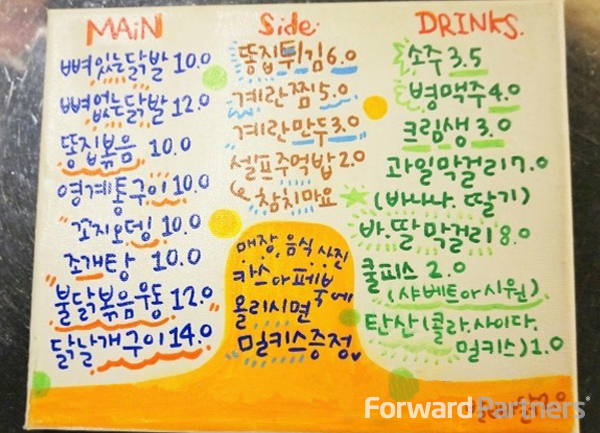 MAiN
뼈있는닭발 10.0
뼈없는닭발 12.0
똥집볶음 10.0
영계통구이 10.0
꼬지오뎅 10.0
조개탕 10.0
불닭볶음우동 12.0
닭날개구이 14.0
Side
똥집튀김 6.0
계란찜 5.0
계란만두 3.0
셀프주먹밥 2.0
참치마요
매장, 음식 사진
카스 or 페북에
올리시면
밀키스증정
DRINKS.
소주 3.5
병맥주 4.0
크림생 3.0
과일막걸리 7.0
(바나나. 딸기)
바.딸막걸리 8.0
쿨피스 2.0
(샤베트아시원)
탄산(콜라.사이다.
밀키스) 1.0
ForwardPartners